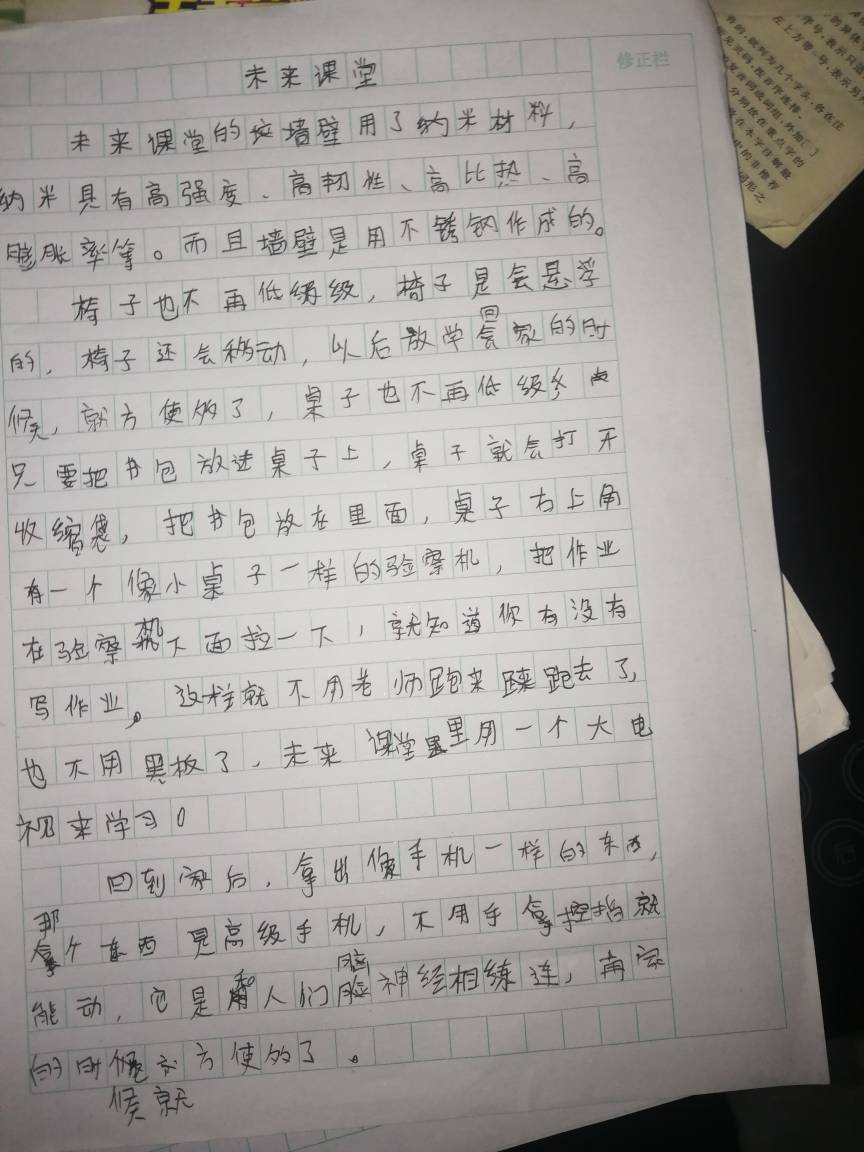 未来课堂
修正栏
未来课堂的墙壁用了纳米材料，
纳米具有高强度、高韧性、高比热、高
膨胀率等。而且墙壁是用不锈钢作成的。
椅子也不再低级，椅子是会悬浮
的，椅子还会移动，以后放学回家的时
候，就方便多了，桌子也不再低级，
只要把书包放进桌子上，桌子就会打开
收缩袋，把书包放在里面，桌子右上角
有一个像小桌子一样的验察机，把作业
在验察机下面拉一下，就知道你有没有
写作业。这样就不用老师跑来跑去了，
也不用黑板了，未来课堂里用一个大电
视来学习。
回到家后，拿出像手机一样的东西，
那个东西是高级手机，不用手拿就
能动，它是和人们脑神经相连，再
的时候就方便多了。